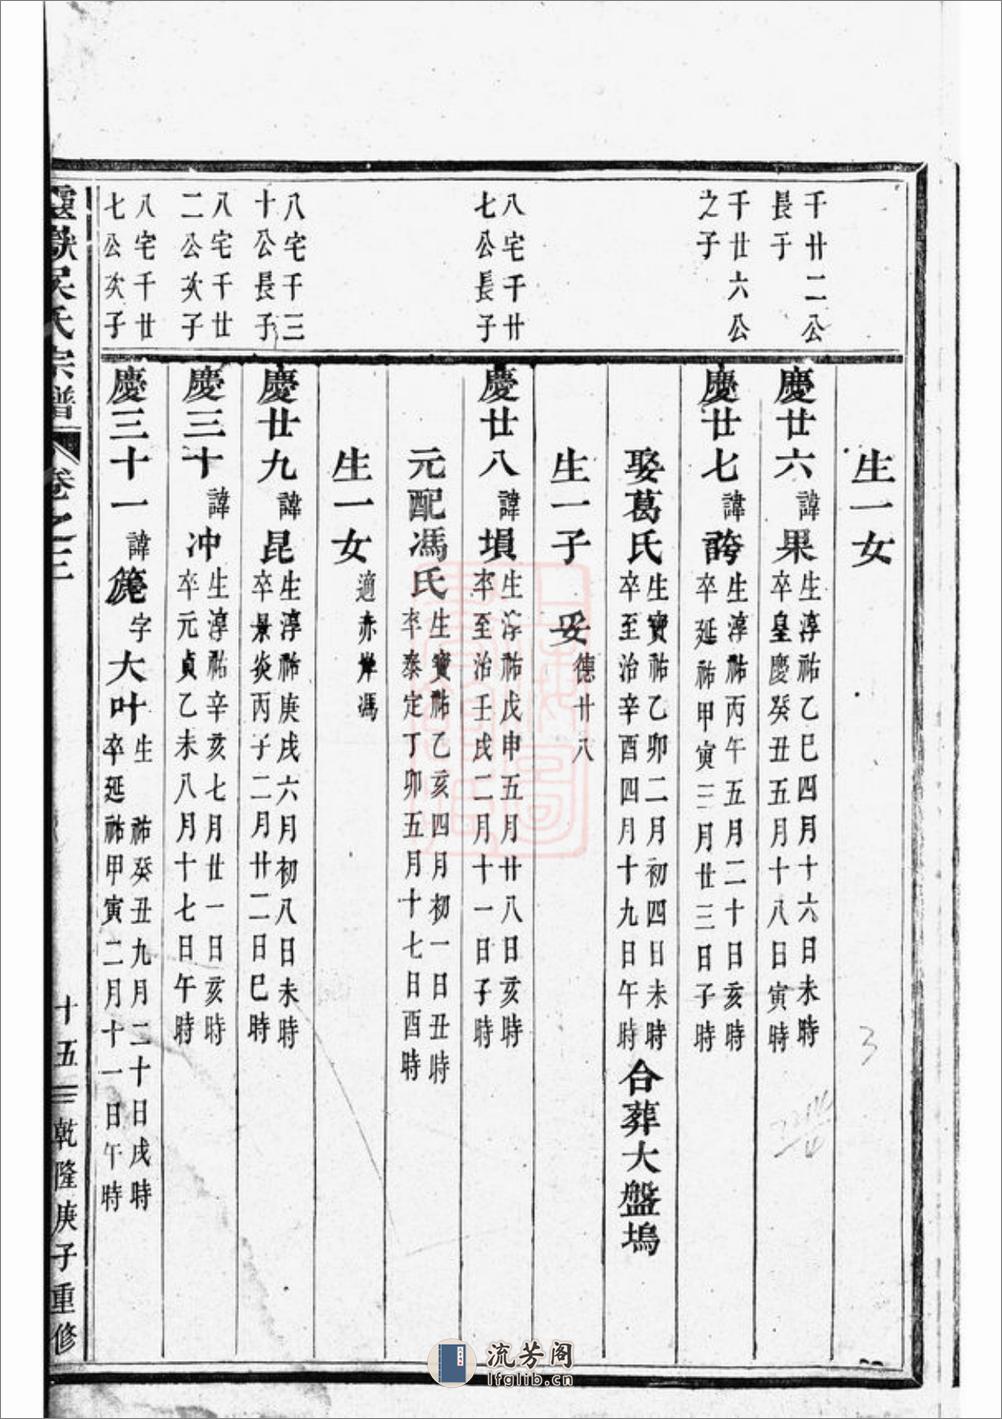 生一女
千廿二公
長子
慶廿六 諱果 生淳祐乙巳四月十六日未時
卒皇慶癸丑五月十八日寅時
千廿六公
之子
慶廿七 諱誇 生淳祐丙午五月二十日亥時
卒延祐甲寅三月廿三日子時
娶葛氏 生寶祐乙卯二月初四日未時
卒至治辛酉四月十九日午時 合葬大盤塢
生一子 妥 德廿八
八宅千廿
七公長子
慶廿八 諱塤 生淳祐戊申五月廿八日亥時
卒至治壬戌二月十一日子時
元配馮氏 生寶祐乙亥四月初一日丑時
卒泰定丁卯五月十七日酉時
生一女 適赤岸馮
八宅千三
十公長子
慶廿九 諱昆 生淳祐庚戌六月初八日未時
卒景炎丙子二月廿二日巳時
八宅千廿
二公次子
慶三十 諱冲 生淳祐辛亥七月廿一日亥時
卒元貞乙未八月十七日午時
八宅千廿
七公次子
慶三十一 諱 字大叶 生 祐癸丑九月二十日戌時
卒延祐甲寅二月十一日午時
靈嶽吴氏宗譜 卷之三 十五 乾隆庚子重修
3
流芳阁
lfglib.cn